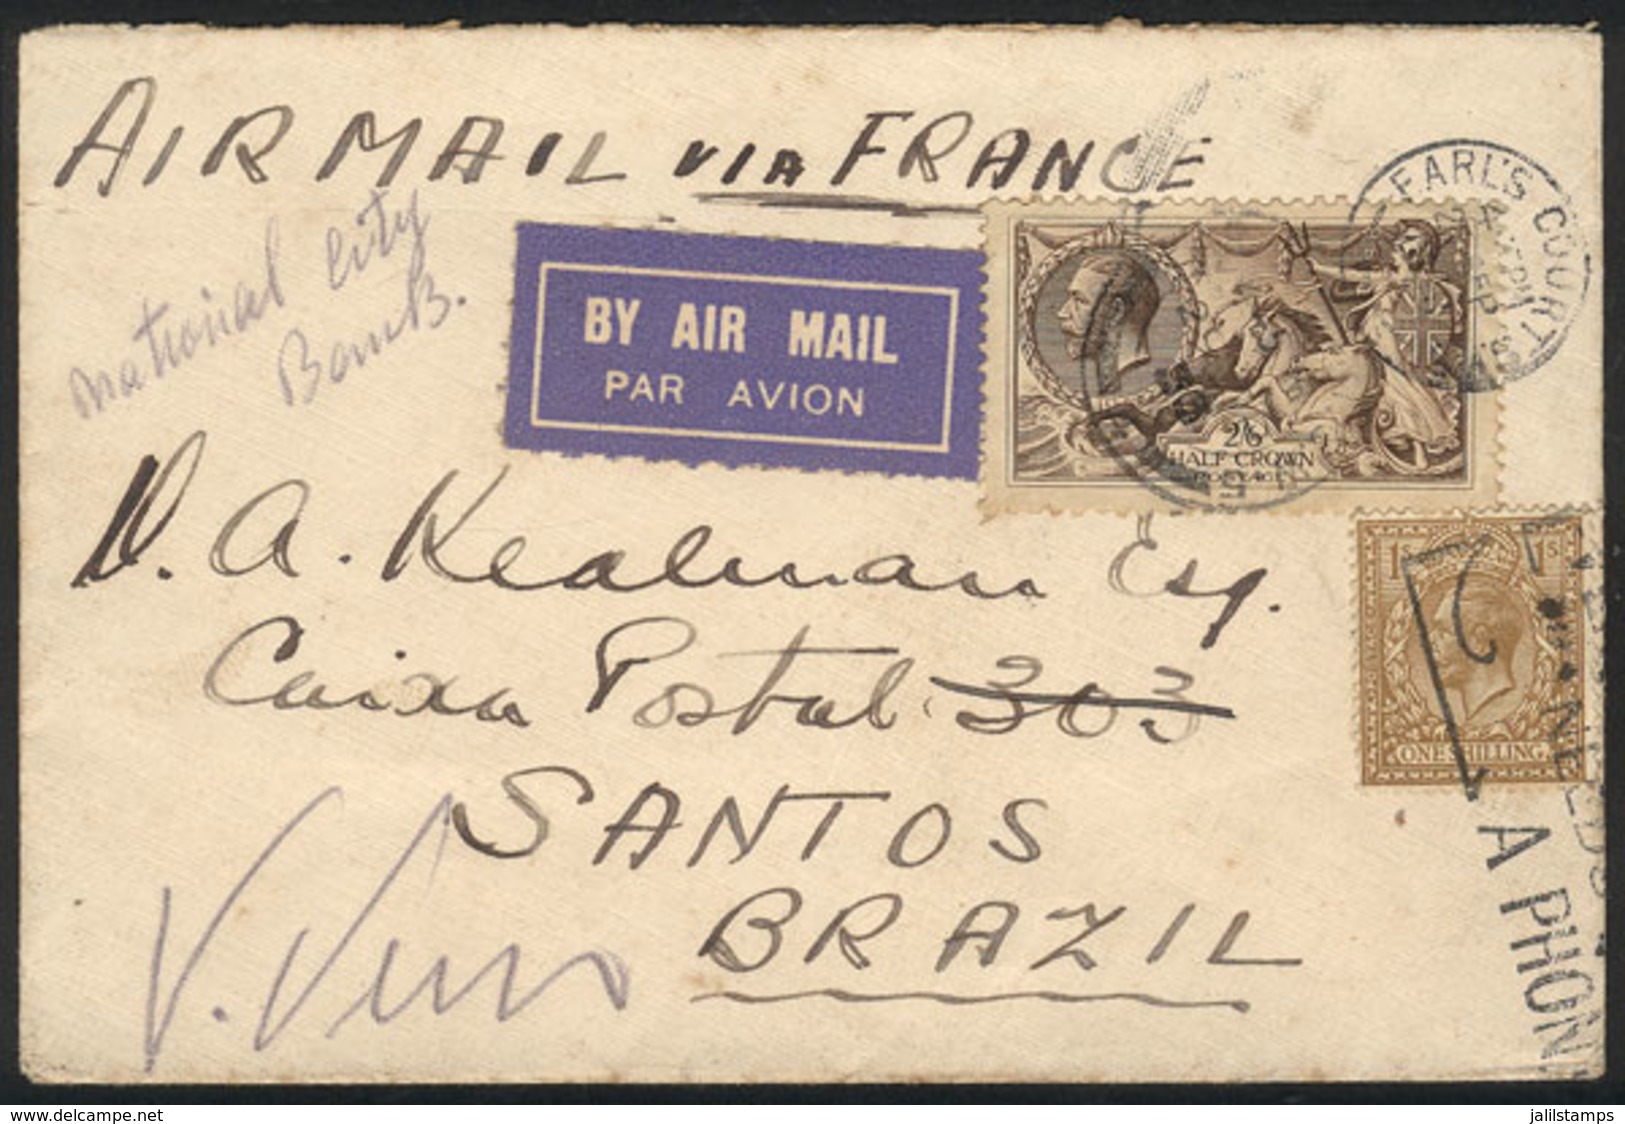 AIR MAIL VIA FRANCE
National City
Bank.
BY AIR MAIL
PAR AVION
EARL'S COURT
2/6
HALF CROWN
POSTAGE
D. A. Kealman Esq.
Caixa Postal 303
SANTOS
BRAZIL
1s 1s
ONE SHILLING
NEEDS
A PHON
www.delcampe.net
jalilstamps